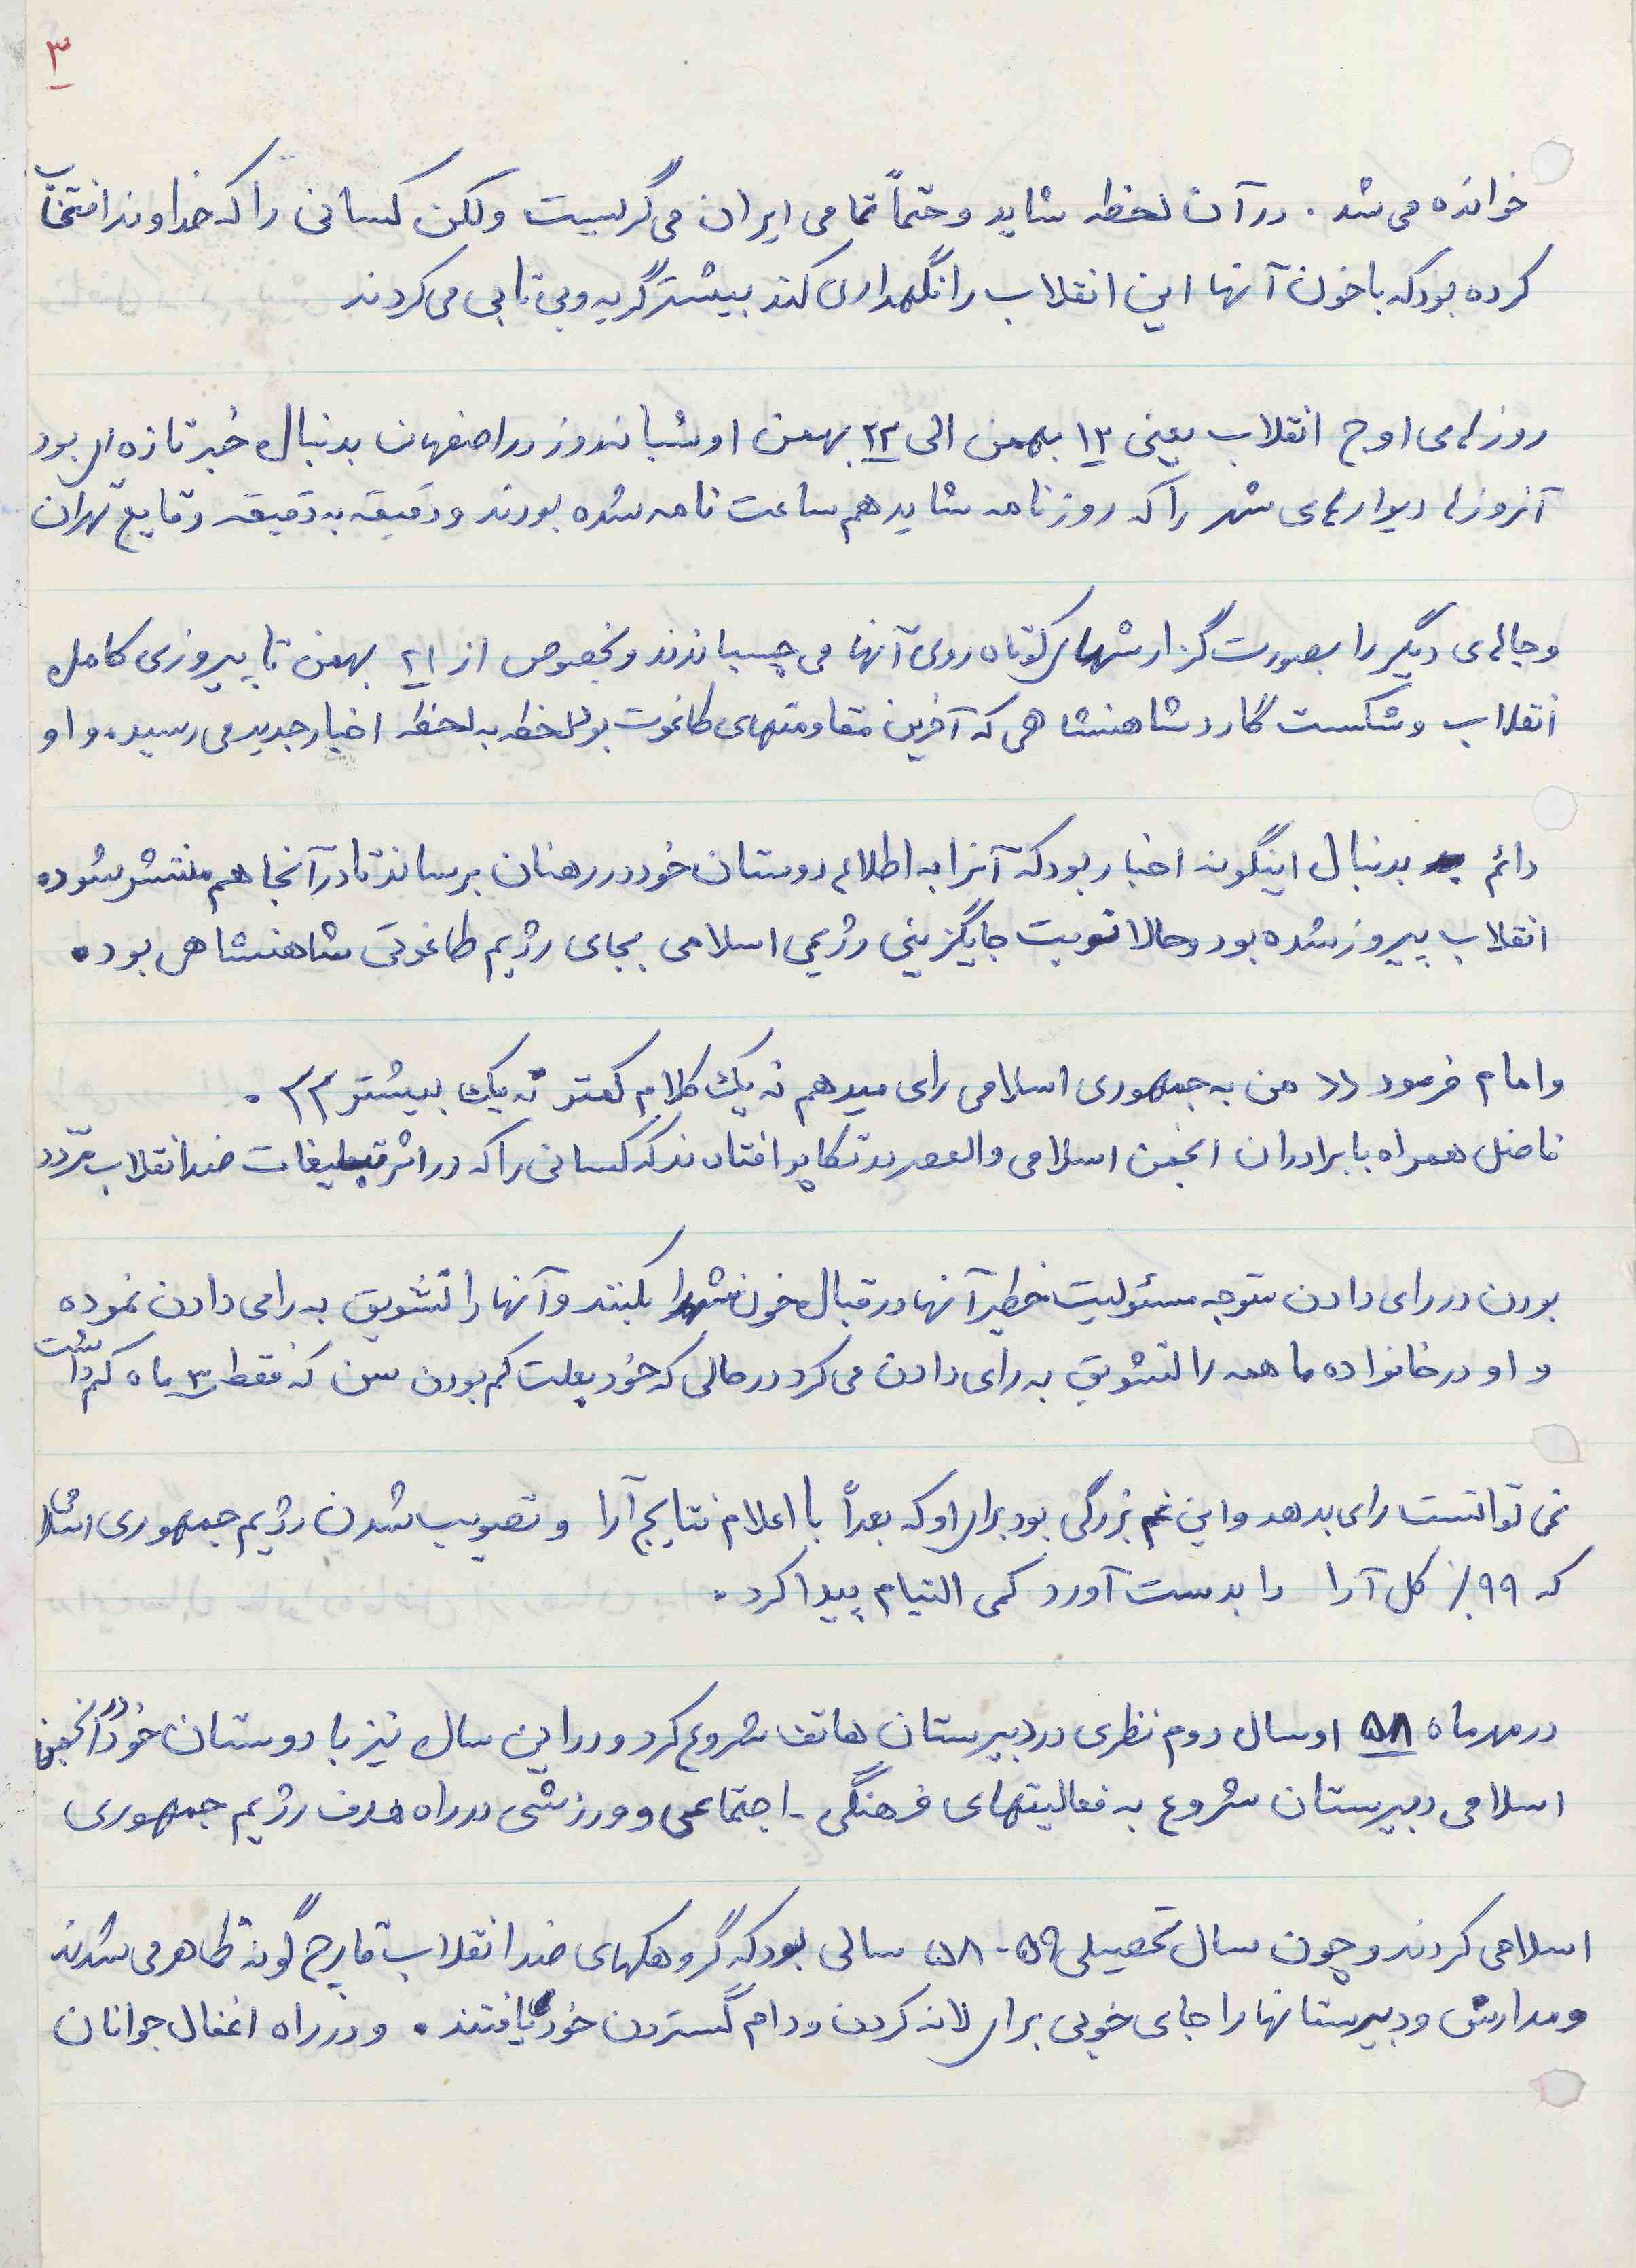 ۳
خوانده می‌شد. در آن لحظه شاید و حتماً تمامی ایران می‌گریست ولکن کسانی را که خداوند انتخاب
کرده بود که با خون آنها این انقلاب را نگهداری کند بیشتر گریه و بی تابی می‌کردند
روزهای اوج انقلاب یعنی ۱۲ بهمن الی ۲۲ بهمن او شبانه‌روز در اصفهان بدنبال خبر تازه‌ای بود
آنروزها دیوارهای شهر را که روزنامه شاید هم ساعت نامه شده بودند و دقیقه به دقیقه وقایع تهران
و جاهای دیگر را بصورت گزارشهای کوتاه روی آنها می‌چسباندند و بخصوص از ۲۱ بهمن تا پیروزی کامل
انقلاب و شکست گارد شاهنشاهی که آخرین مقاومتهای طاغوت بود لحظه به لحظه اخبار جدید می‌رسید. و او
دائم بدنبال اینگونه اخبار بود که آنرا به اطلاع دوستان خود در رهنان برساند تا در آنجا هم منتشر شود.
انقلاب پیروز شده بود و حالا نوبت جایگزینی رژیمی اسلامی بجای رژیم طاغوتی شاهنشاهی بود.
و امام فرمود «من به جمهوری اسلامی رای میدهم نه یک کلام کمتر نه یک بیشتر».
فاضل همراه با برادران انجمن اسلامی والعصر بتکاپو افتادند که کسانی را که در اثر تبلیغات ضد انقلاب مردد
بودن در رای دادن متوجه مسئولیت خطیر آنها در قبال خون شهدا بکنند و آنها را تشویق به رای دادن نموده
و او در خانواده ما همه را تشویق به رای دادن می‌کرد در حالی که خود بعلت کم بودن سن که فقط ۳ ماه کم داشت
نمی‌توانست رای بدهد و این غم بزرگی بود برای او که بعداً با اعلام نتایج آرا و تصویب شدن رژیم جمهوری اسلامی
که ۹۹٪ کل آرا را بدست آورد کمی التیام پیدا کرد.
در مهرماه ۵۸ او سال دوم نظری در دبیرستان هاتف شروع کرد و در این سال نیز با دوستان خود در انجمن
اسلامی دبیرستان شروع به فعالیتهای فرهنگی - اجتماعی و ورزشی در راه هدف رژیم جمهوری
اسلامی کردند و چون سال تحصیلی ۵۹-۵۸ سالی بود که گروهکهای ضد انقلاب قارچ گونه ظاهر می‌شدند
و مدارس و دبیرستانها را جای خوبی برای لانه کردن و دام گستردن خود یافتند. و در راه اغفال جوانان